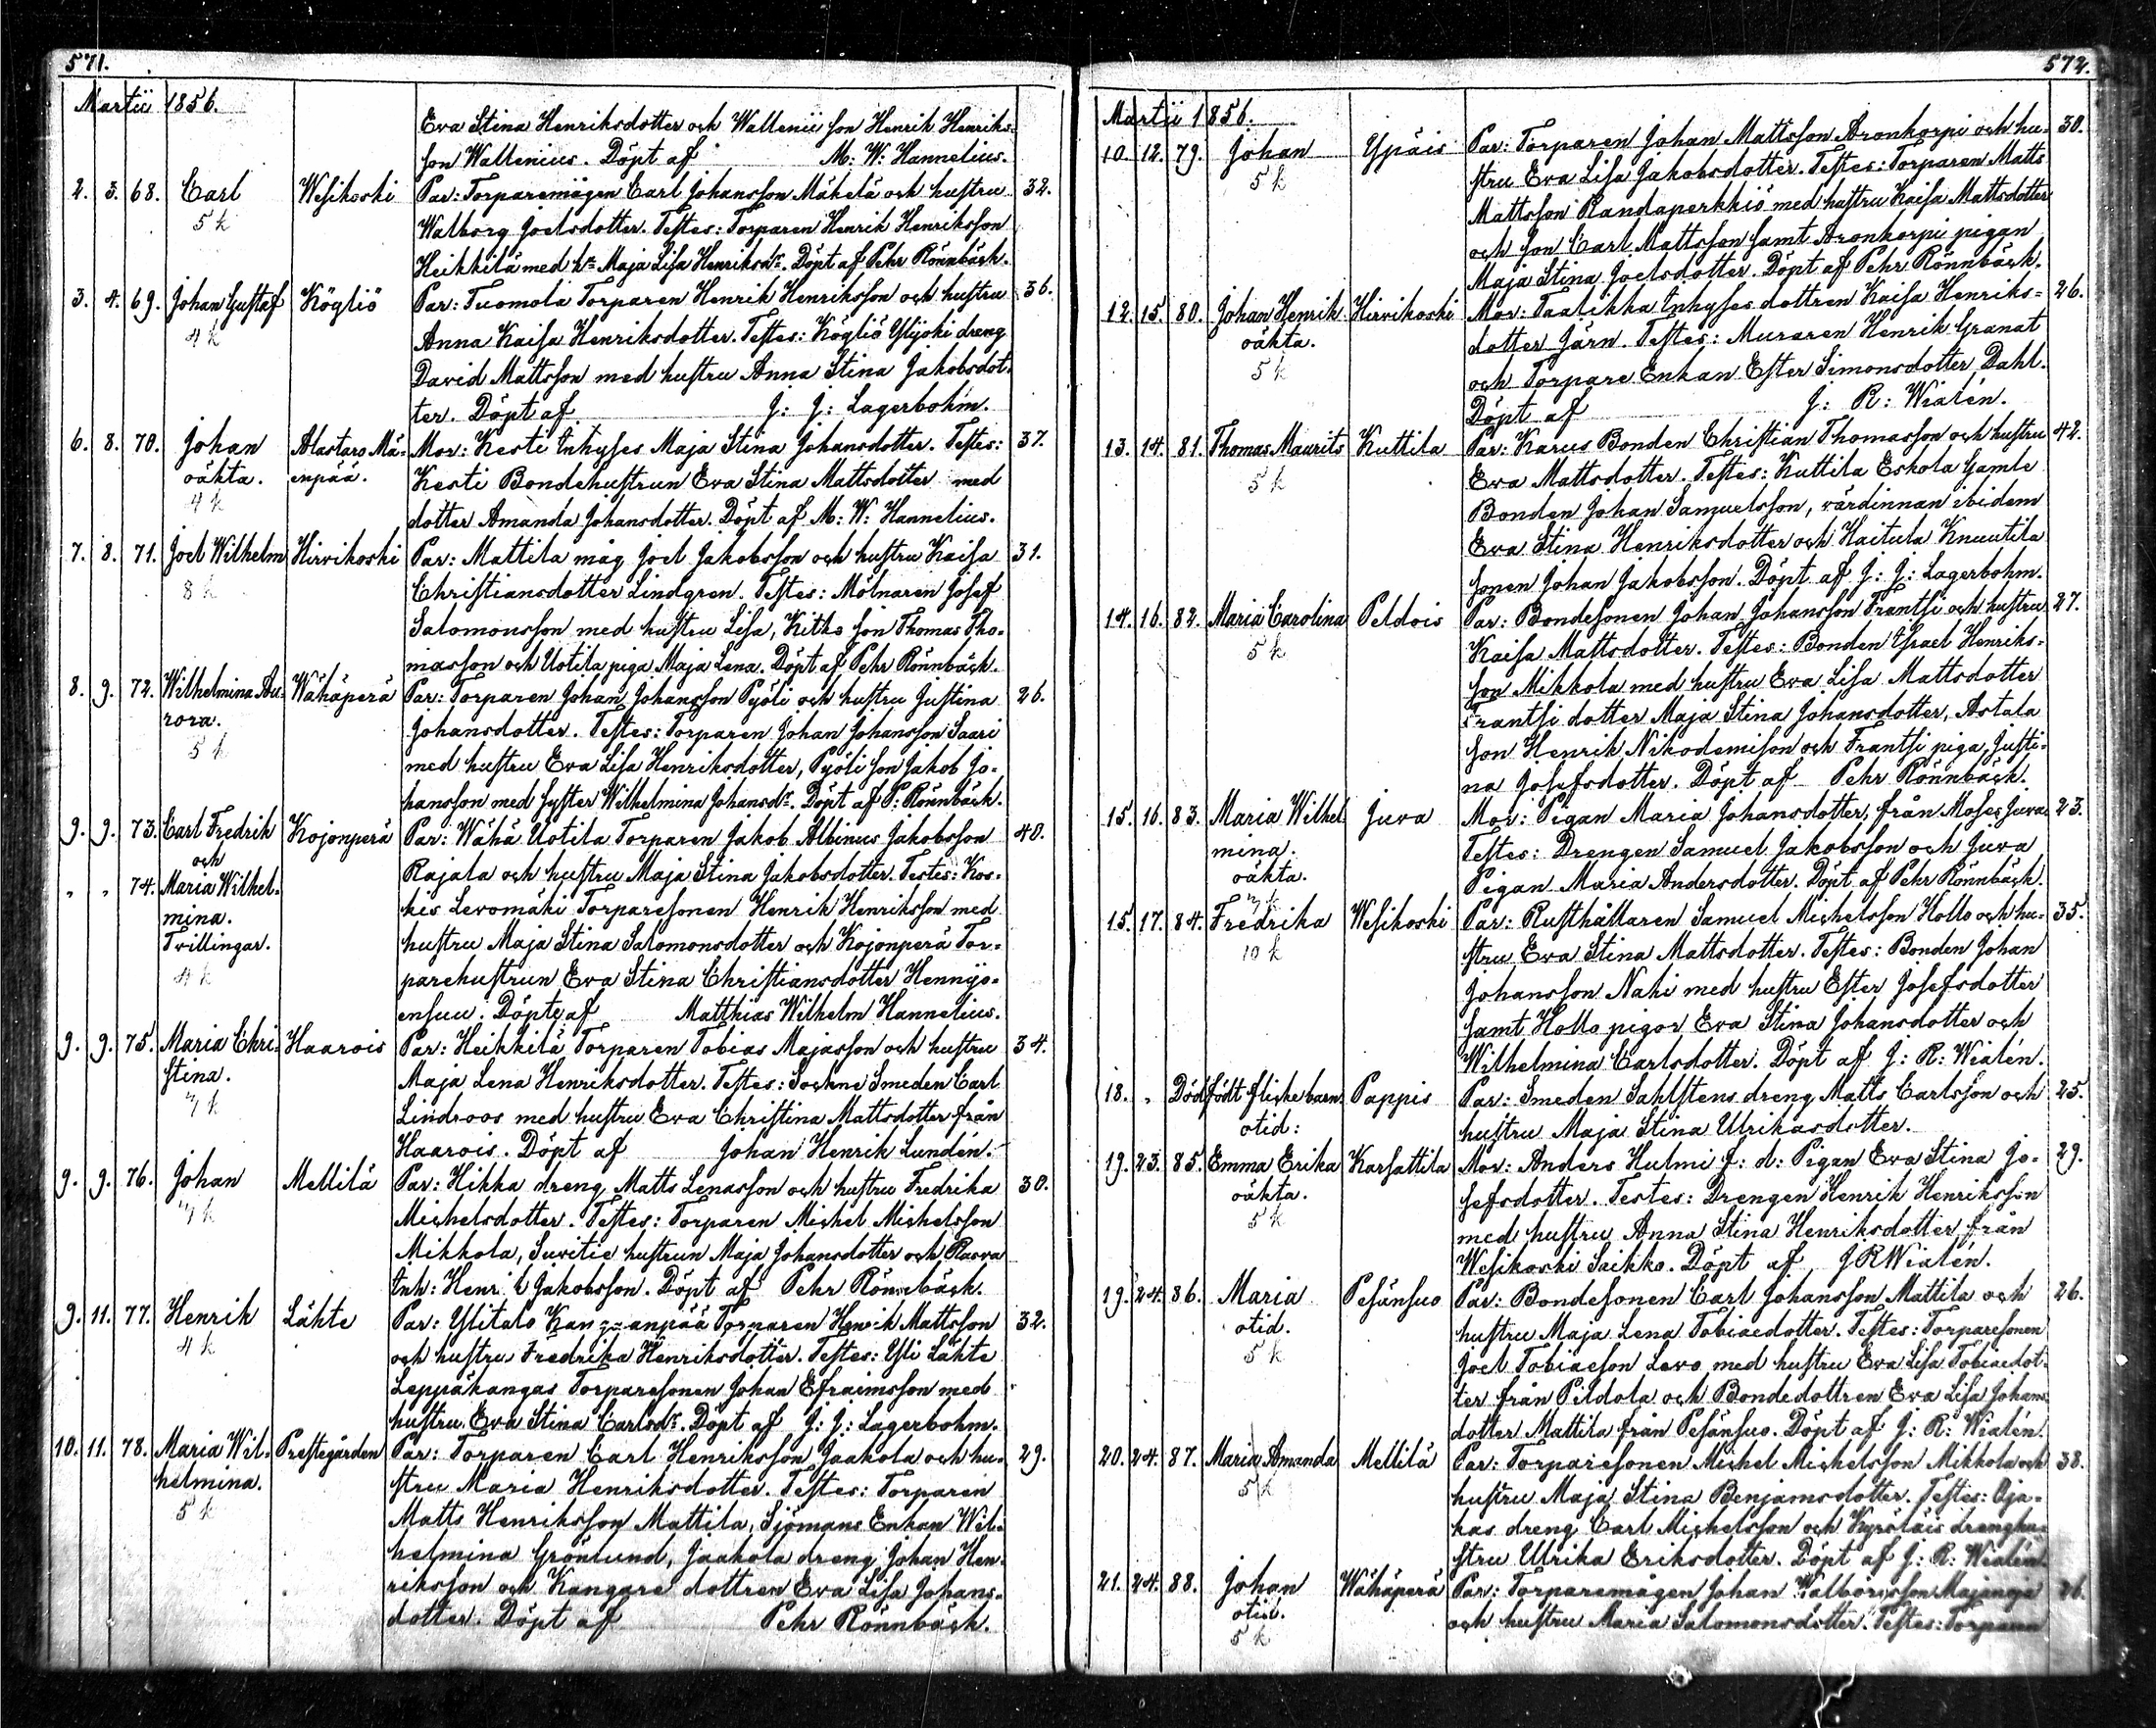 571.
Martii 1856.
Eva Stina Henriksdotter och Wallenii son Henrik Henriks-
son Wallenius. Döpt af M: W: Hannelius.
2. 3. 68. Carl Wesikoski Par: Torparemågen Carl Johansson Mäkelä och hustru 32.
5 k Walborg Joelsdotter. Testes: Torparen Henrik Henriksson
Heikkilä med h:u Maja Lisa Henriksd:r. Döpt af Pehr Rönnbäck.
3. 4. 69. Johan Gustaf Kögliö Par: Tuomola Torparen Henrik Henriksson och hustru 36.
4 k Anna Kaisa Henriksdotter. Testes: Kögliö Ylijoki dreng
David Mattsson med hustru Anna Stina Jakobsdot-
ter. Döpt af J: J: Lagerbohm.
6. 8. 70. Johan Alastaro Mä- Mor: Kesti Inhyses Maja Stina Johansdotter. Testes: 37.
oäkta. enpää. Kesti Bondehustrun Eva Stina Mattsdotter med
4 k dotter Amanda Johansdotter. Döpt af M: W: Hannelius.
7. 8. 71. Joel Wilhelm Hirvikoski Par: Mattila måg Joel Jakobsson och hustru Kaisa 31.
8 k Christiansdotter Lindgren. Testes: Mölnaren Josef
Salomonsson med hustru Lisa, Kitko son Thomas Tho-
masson och Uotila piga Maja Lena. Döpt af Pehr Rönnbäck.
8. 9. 72. Wilhelmina Au- Wähäperä Par: Torparen Johan Johansson Pyöli och hustru Justina 26.
rora. Johansdotter. Testes: Torparen Johan Johansson Saari
5 k med hustru Eva Lisa Henriksdotter, Pyöli son Jakob Jo-
hansson med syster Wilhelmina Johansd:r. Döpt af P: Rönnbäck.
9. 9. 73. Carl Fredrik Kojonperä Par: Wähä Uotila Torparen Jakob Albinus Jakobsson 40.
och
" " 74. Maria Wilhel- Rajala och hustru Maja Stina Jakobsdotter. Testes: Kos-
mina. kis Levomäki Torparesonen Henrik Henriksson med
Tvillingar. hustru Maja Stina Salomonsdotter och Kojonperä Tor-
4 k parehustrun Eva Stina Christiansdotter Hennijo-
ensuu. Döpte af Matthias Wilhelm Hannelius.
9. 9. 75. Maria Chri- Haarois Par: Heikkilä Torparen Tobias Majasson och hustru 34.
stina. Maja Lena Henriksdotter. Testes: Sockne Smeden Carl
7 k Lindroos med hustru Eva Christina Mattsdotter från
Haarois. Döpt af Johan Henrik Lundén.
9. 9. 76. Johan Mellilä Par: Hikka dreng Matts Lenasson och hustru Fredrika 30.
7 k Michelsdotter. Testes: Torparen Michel Michelsson
Mikkola, Suvitie hustrun Maja Johansdotter och Rasva
Inh: Henrik Jakobsson. Döpt af Pehr Rönnbäck.
9. 11. 77. Henrik Lähte Par: Ylitalo Kangaanpää Torparen Henrik Mattsson 32.
4 k och hustru Fredrika Henriksdotter. Testes: Yli Lähte
Leppäkangas Torparesonen Johan Efraimsson med
hustru Eva Stina Carlsd:r. Döpt af J: J: Lagerbohm.
10. 11. 78. Maria Wil- Prestegården Par: Torparen Carl Henriksson Jaakola och hu- 29.
helmina. stru Maria Henriksdotter. Testes: Torparen
5 k Matts Henriksson Mattila, Sjömans Enkan Wil-
helmina Grönlund, Jaakola dreng Johan Hen-
riksson och Kangare dottren Eva Lisa Johans-
dotter. Döpt af Pehr Rönnbäck.
572.
Martii 1856.
10. 12. 79. Johan Ypäis Par: Torparen Johan Mattsson Aronkorpi och hu- 30.
5 k stru Eva Lisa Jakobsdotter. Testes: Torparen Matts
Mattsson Randaperkkiö med hustru Kaisa Mattsdotter
och son Carl Mattsson samt Aronkorpi pigan
Maja Stina Joelsdotter. Döpt af Pehr Rönnbäck.
12. 15. 80. Johan Henrik Hirvikoski Mor: Taalikka Inhyses dottren Kaisa Henriks- 26.
oäkta. dotter Järn. Testes: Muraren Henrik Granat
5 k och Torpare Enkan Ester Simonsdotter Dahl.
Döpt af J: R: Wialén.
13. 14. 81. Thomas Maurits Kuttila Par: Karus Bonden Christian Thomasson och hustru 42.
5 k Eva Mattsdotter. Testes: Kuttila Eskola Gamle
Bonden Johan Samuelsson, värdinnan ibidem
Eva Stina Henriksdotter och Haitula Knuutila
sonen Johan Jakobsson. Döpt af J: J: Lagerbohm.
14. 16. 82. Maria Carolina Peldois Par: Bondesonen Johan Johansson Frantsi och hustru 27.
5 k Kaisa Mattsdotter. Testes: Bonden Israel Henriks-
son Mikkola med hustru Eva Lisa Mattsdotter
Frantsi dotter Maja Stina Johansdotter, Astala
son Henrik Nikodemison och Frantsi piga Justi-
na Josefsdotter. Döpt af Pehr Rönnbäck.
15. 16. 83. Maria Wilhel Juva Mor: Pigan Maria Johansdotter, från Moses Juva 23.
mina. Testes: Drengen Samuel Jakobsson och Juva
oäkta. Pigan Maria Andersdotter. Döpt af Pehr Rönnbäck.
7 k
15. 17. 84. Fredrika Wesikoski Par: Rusthållaren Samuel Michelsson Hollo och hu- 35.
10 k stru Eva Stina Mattsdotter. Testes: Bonden Johan
Johansson Nahi med hustru Ester Josefsdotter
samt Hollo pigor Eva Stina Johansdotter och
Wilhelmina Carlsdotter. Döpt af J: R: Wialén.
18. " Dödfödt flickebarn Pappis Par: Smeden Sahlstens dreng Matts Carlsson och 25.
otid: hustru Maja Stina Ulrikasdotter.
19. 23. 85. Emma Erika Karsattila Mor: Anders Hulmi f: d: Pigan Eva Stina Jo- 29.
oäkta. sefsdotter. Testes: Drengen Henrik Henriksson
5 k med hustru Anna Stina Henriksdotter från
Wesikoski Saikko. Döpt af J R Wialén.
19. 24. 86. Maria Pesänsuo Par: Bondesonen Carl Johansson Mattila och 26.
otid. hustru Maja Lena Tobiaedotter. Testes: Torparesonen
5 k Joel Tobiaeson Levo med hustru Eva Lisa Tobiaedot-
ter från Pildola och Bondedottren Eva Lisa Johans
dotter Mattila från Pesänsuo. Döpt af J: R: Wialén.
20. 24. 87. Maria Amanda Mellilä Par: Torparesonen Michel Michelsson Mikkola och 38.
5 k hustru Maja Stina Benjamsdotter. Testes: Oja-
kas dreng Carl Michelsson och Kyröläis drenghu-
stru Ulrika Eriksdotter. Döpt af J: R: Wialén.
21. 24. 88. Johan Wähäperä Par: Torparemågen Johan Walborisson 26.
otid. och hustru Maria Salomonsdotter. Testes: Torparen
5 k